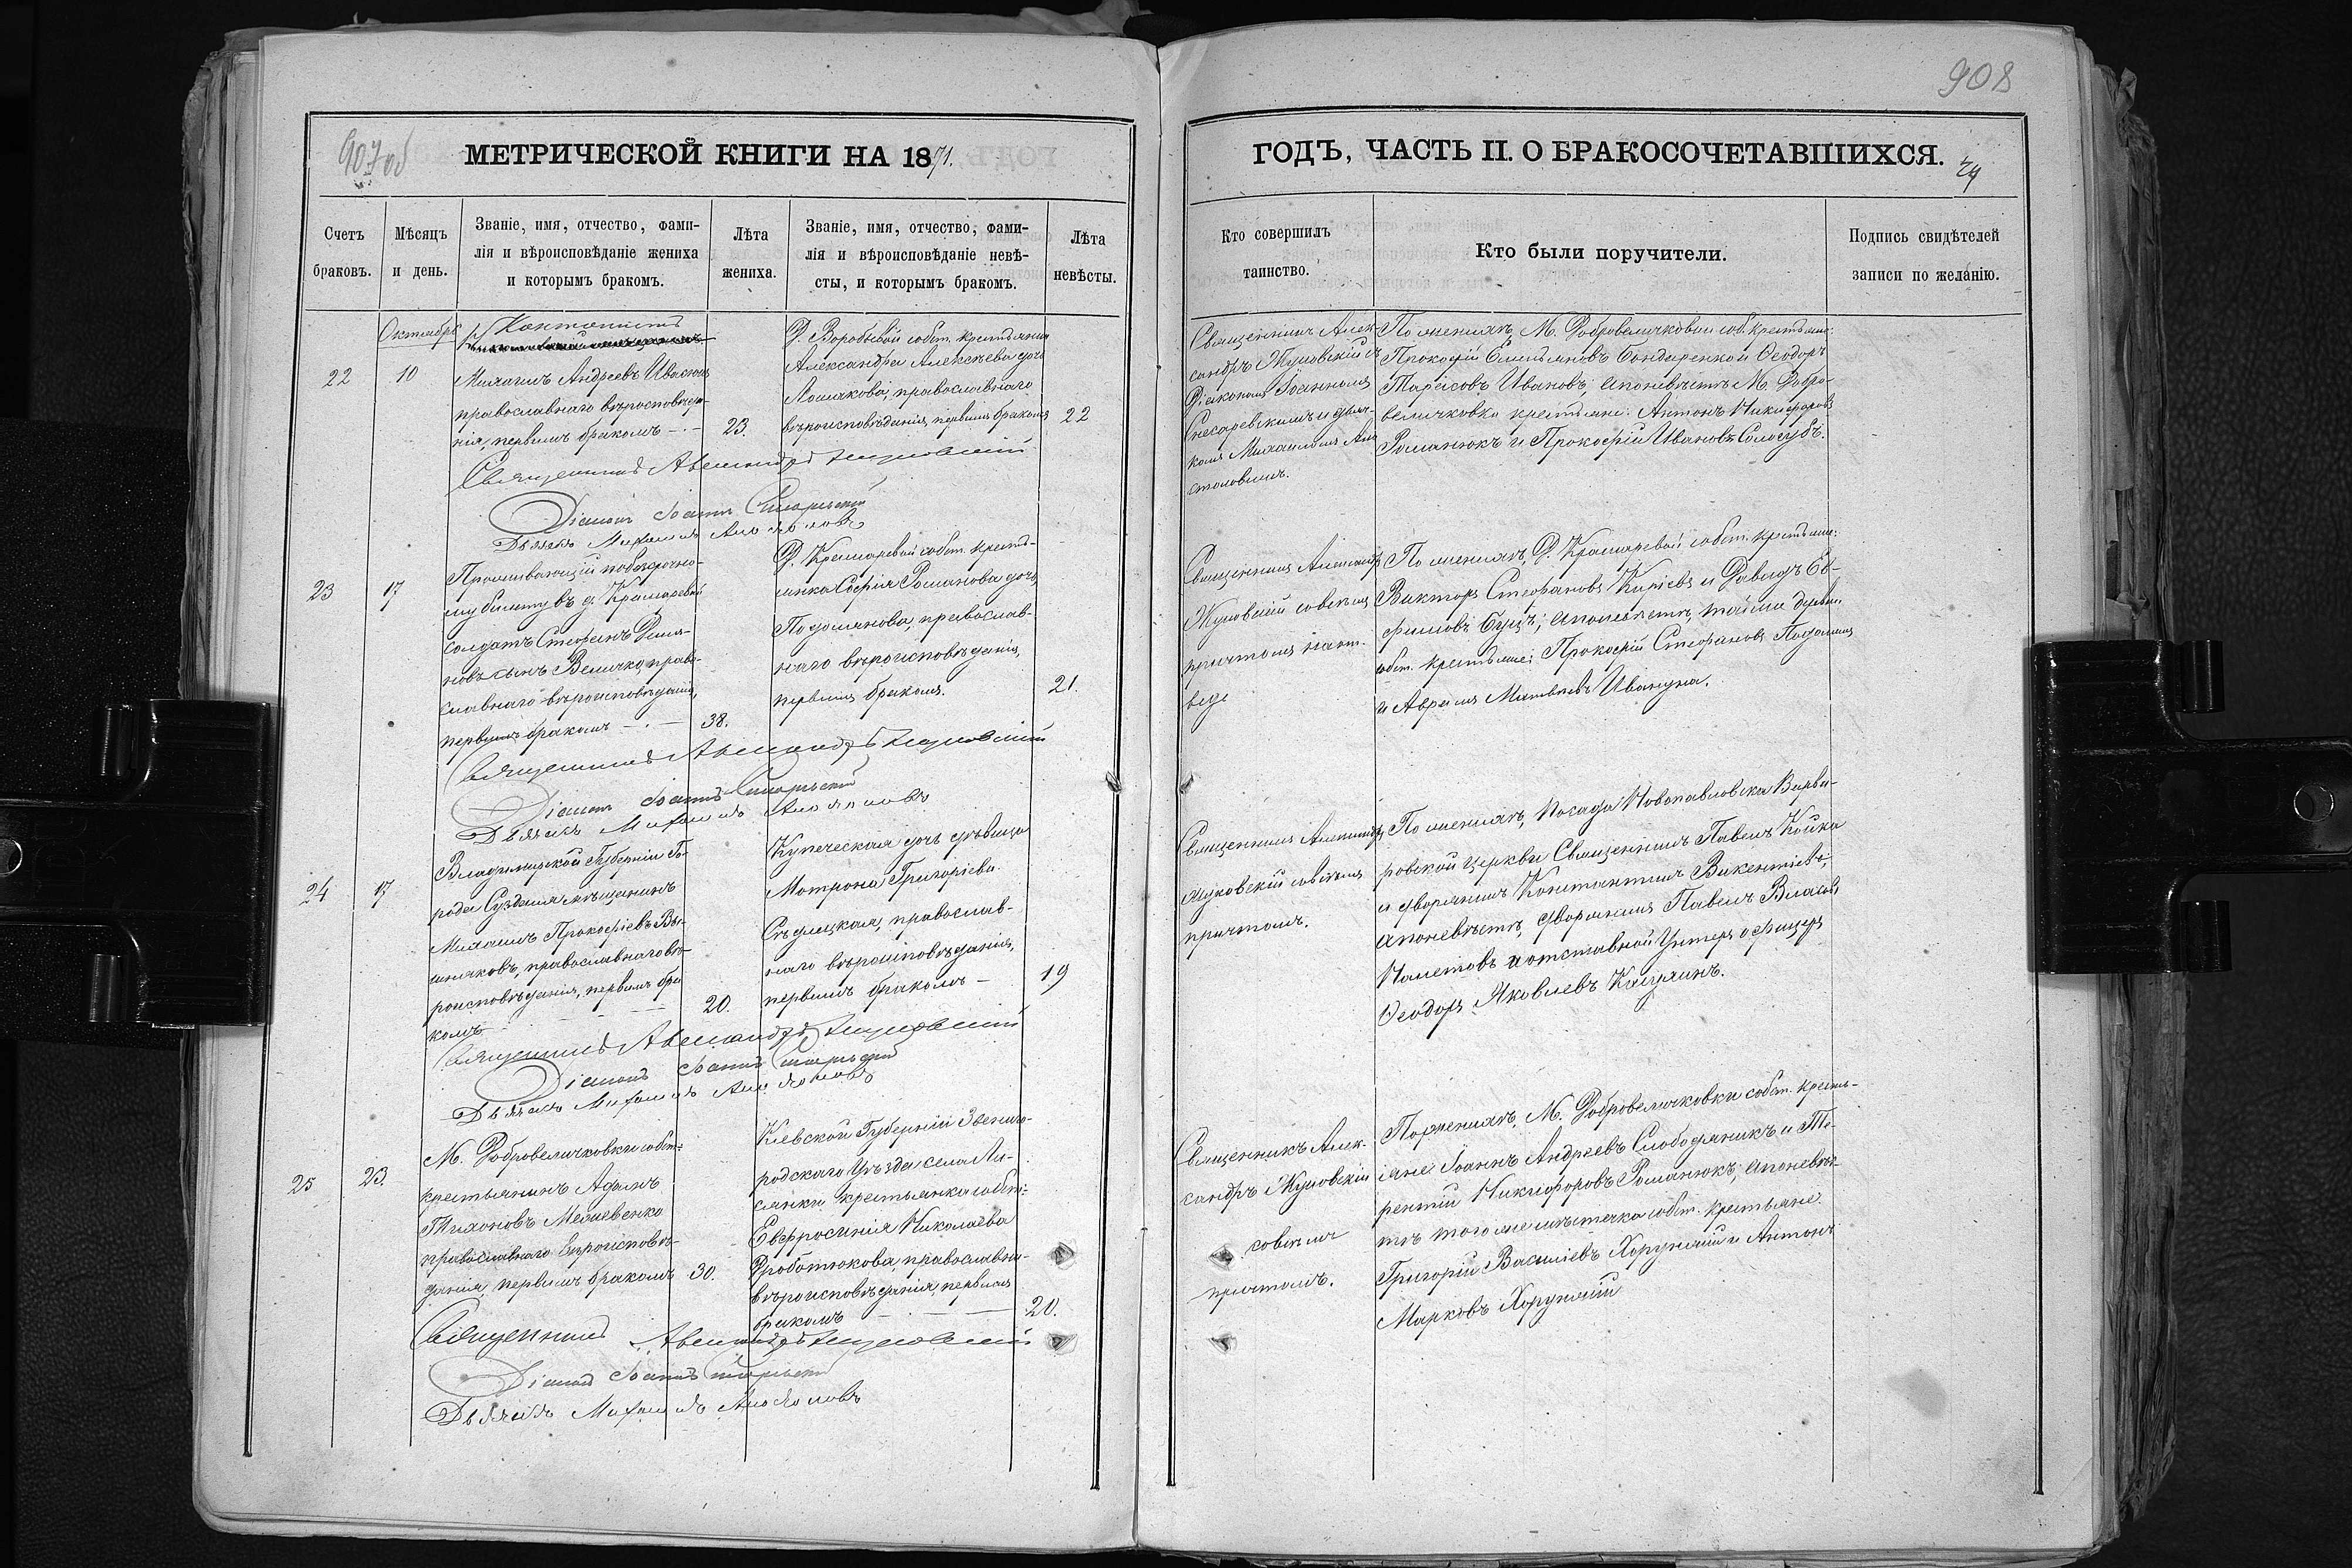 907об
МЕТРИЧЕСКОЙ КНИГИ НА 1871.
Счетъ браковъ.
Мѣсяцъ и день.
Званіе, имя, отчество, фами-
лія и вѣроисповѣданіе жениха
и которымъ бракомъ.
Лѣта
жениха.
Званіе, имя, отчество, фами-
лія и вѣроисповѣданіе невѣ-
сты, и которымъ бракомъ.
Лѣта
невѣсты.
Октябрь
22
10
Михаилъ Андреевъ Ивасюкъ
православнаго вѣроисповѣда-
нія, первымъ бракомъ
23.
Д. Воробьевой собст. крестьянка
Александра Алексѣева дочь
православнаго
вѣроисповѣданія, первымъ бракомъ
22
Священникъ Александръ Жуковскій
Діаконъ Іоаннъ
Дьячекъ Михаилъ Апостоловъ
23
17
Проживающій по безсрочно-
му билету въ д. Крамаревой
солдатъ Стефанъ
новъ сынъ Величко, право-
славнаго вѣроисповѣданія,
первымъ бракомъ
38.
Д. Крамаревой собст. кресть-
янка Софія Романова дочь
православ-
наго вѣроисповѣданія,
первымъ бракомъ.
21.
Священникъ Александръ Жуковскій
Діаконъ Іоаннъ
Дьячекъ Михаилъ Апостоловъ
24
17
Владимирской Губерніи Го-
рода Суздаля мѣщанинъ
Михаилъ Прокофіевъ Ви-
шняковъ, православнаго вѣ-
роисповѣданія, первымъ бра-
комъ
20.
Купеческая дочь дѣвица
Мотрона Григоріева
Сѣдлецкая, православ-
наго вѣроисповѣданія,
первымъ бракомъ
19
Священникъ Александръ Жуковскій
Діаконъ Іоаннъ
Дьячекъ Михаилъ Апостоловъ
25
23.
М. Добровеличковки собст.
крестьянинъ Адамъ
Тихоновъ
православнаго вѣроисповѣ-
данія, первымъ бракомъ
30.
Кіевской Губерніи Звениго-
родскаго Уѣзда села Ли-
сянки крестьянка собст.
Евфросинія Николаева
Дроботюкова, православна-
вѣроисповѣданія, первымъ
бракомъ
20.
Священникъ Александръ Жуковскій
Діаконъ Іоаннъ
Дьячекъ Михаилъ Апостоловъ
908
ГОДЪ, ЧАСТЬ II. О БРАКОСОЧЕТАВШИХСЯ.
Кто совершилъ
таинство.
Кто были поручители.
Подпись свидѣтелей
записи по желанію.
Священникъ Алек-
сандръ Жуковскій съ
Діакономъ Іоанномъ
и дьяч-
комъ Михаиломъ Апо-
столовымъ.
По женихѣ, М. Добровеличковки соб. крестьяне:
Прокофій Емельяновъ Бондаренко и Ѳеодоръ
Тарасовъ Ивановъ; а по невѣстѣ М. Добро-
величковки крестьяне: Антонъ Никифоровъ
Романюкъ и Прокофій Ивановъ Сологубъ.
Священникъ Александръ
Жуковскій со всѣмъ
причтомъ
По женихѣ, Д. Крамаревой собст. крестьяне:
Викторъ Стефановъ Киріевъ и Давидъ Еф-
фимовъ Буцъ; а по невѣстѣ, той же деревни
собст. крестьяне: Прокофій Стефановъ
и Аврамъ Матвѣевъ Ивануна.
Священникъ Александръ
Жуковскій со всѣмъ
причтомъ.
По женихѣ, Посада Новопавловска Варва-
ровской церкви Священникъ Павелъ Койко
и дворянинъ Константинъ Викентіевъ;
а по невѣстѣ, дворянинъ Павелъ Власовъ
и отставной Унтеръ офицеръ
Ѳеодоръ Яковлевъ
Священникъ Алек-
сандръ Жуковскій
со всѣмъ
причтомъ.
По женихѣ, М. Добровеличковки собст. кресть-
яне Іоаннъ Андреевъ Слободяникъ и Те-
рентій Никифоровъ Романюкъ; а по невѣс-
тѣ того же мѣстечка собст. крестьяне:
Григорій Василіевъ Хорунжій и Антонъ
Марковъ Хорунжій